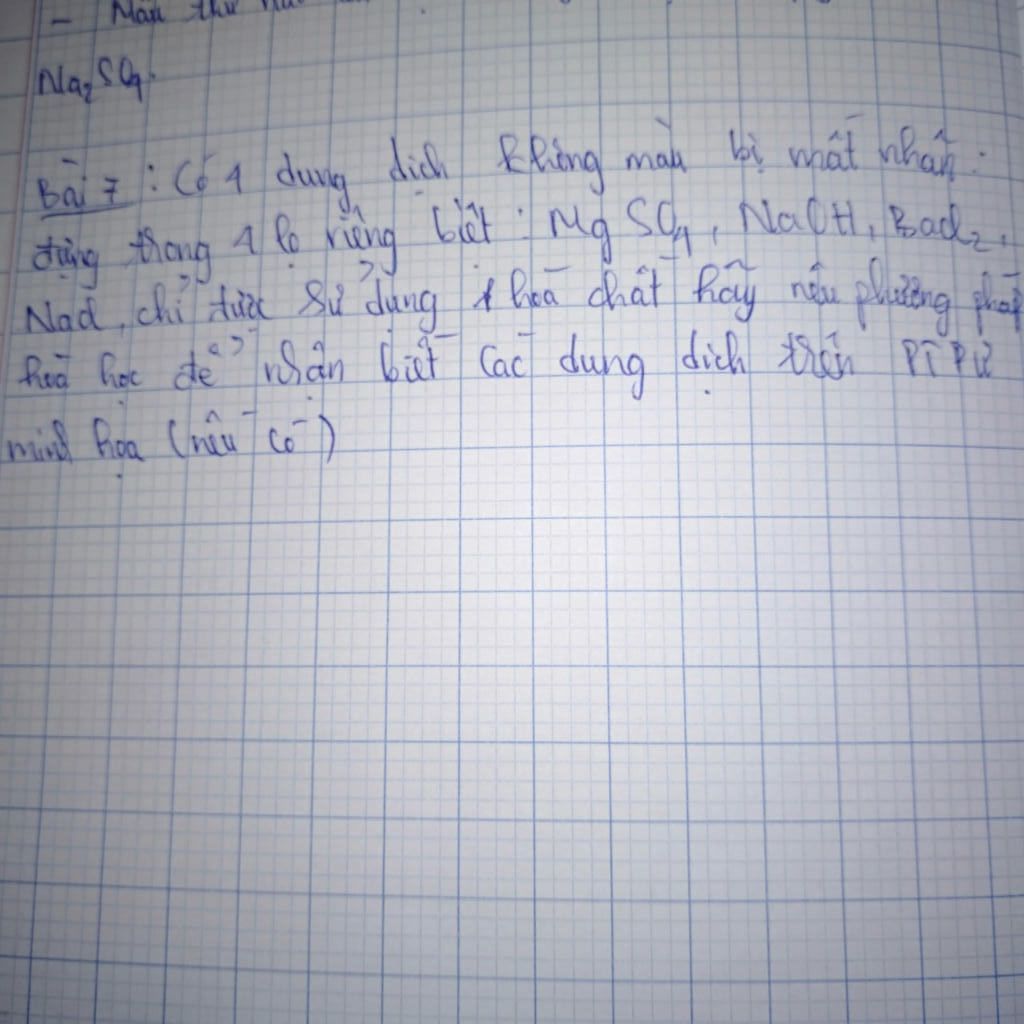 - Mẫu thử
Na₂SO₄.
Bài 7 : Có 4 dung dịch không màu bị mất nhãn :
đựng trong 4 lọ riêng biệt : MgSO₄, NaOH, BaCl₂,
NaCl, chỉ được sử dụng 1 hoá chất hãy nêu phương pháp
hoá học để nhận biết các dung dịch trên PTPƯ
minh họa (nếu có)